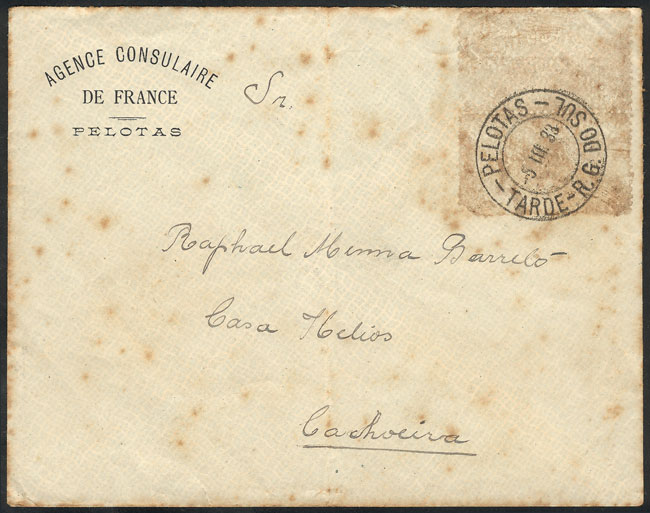 AGENCE CONSULAIRE
DE FRANCE
PELOTAS
Sr.
PELOTAS — R.G. DO SUL
TARDE
5 III 33
Raphael Menna Barreto
Casa Helios
Cachoeira